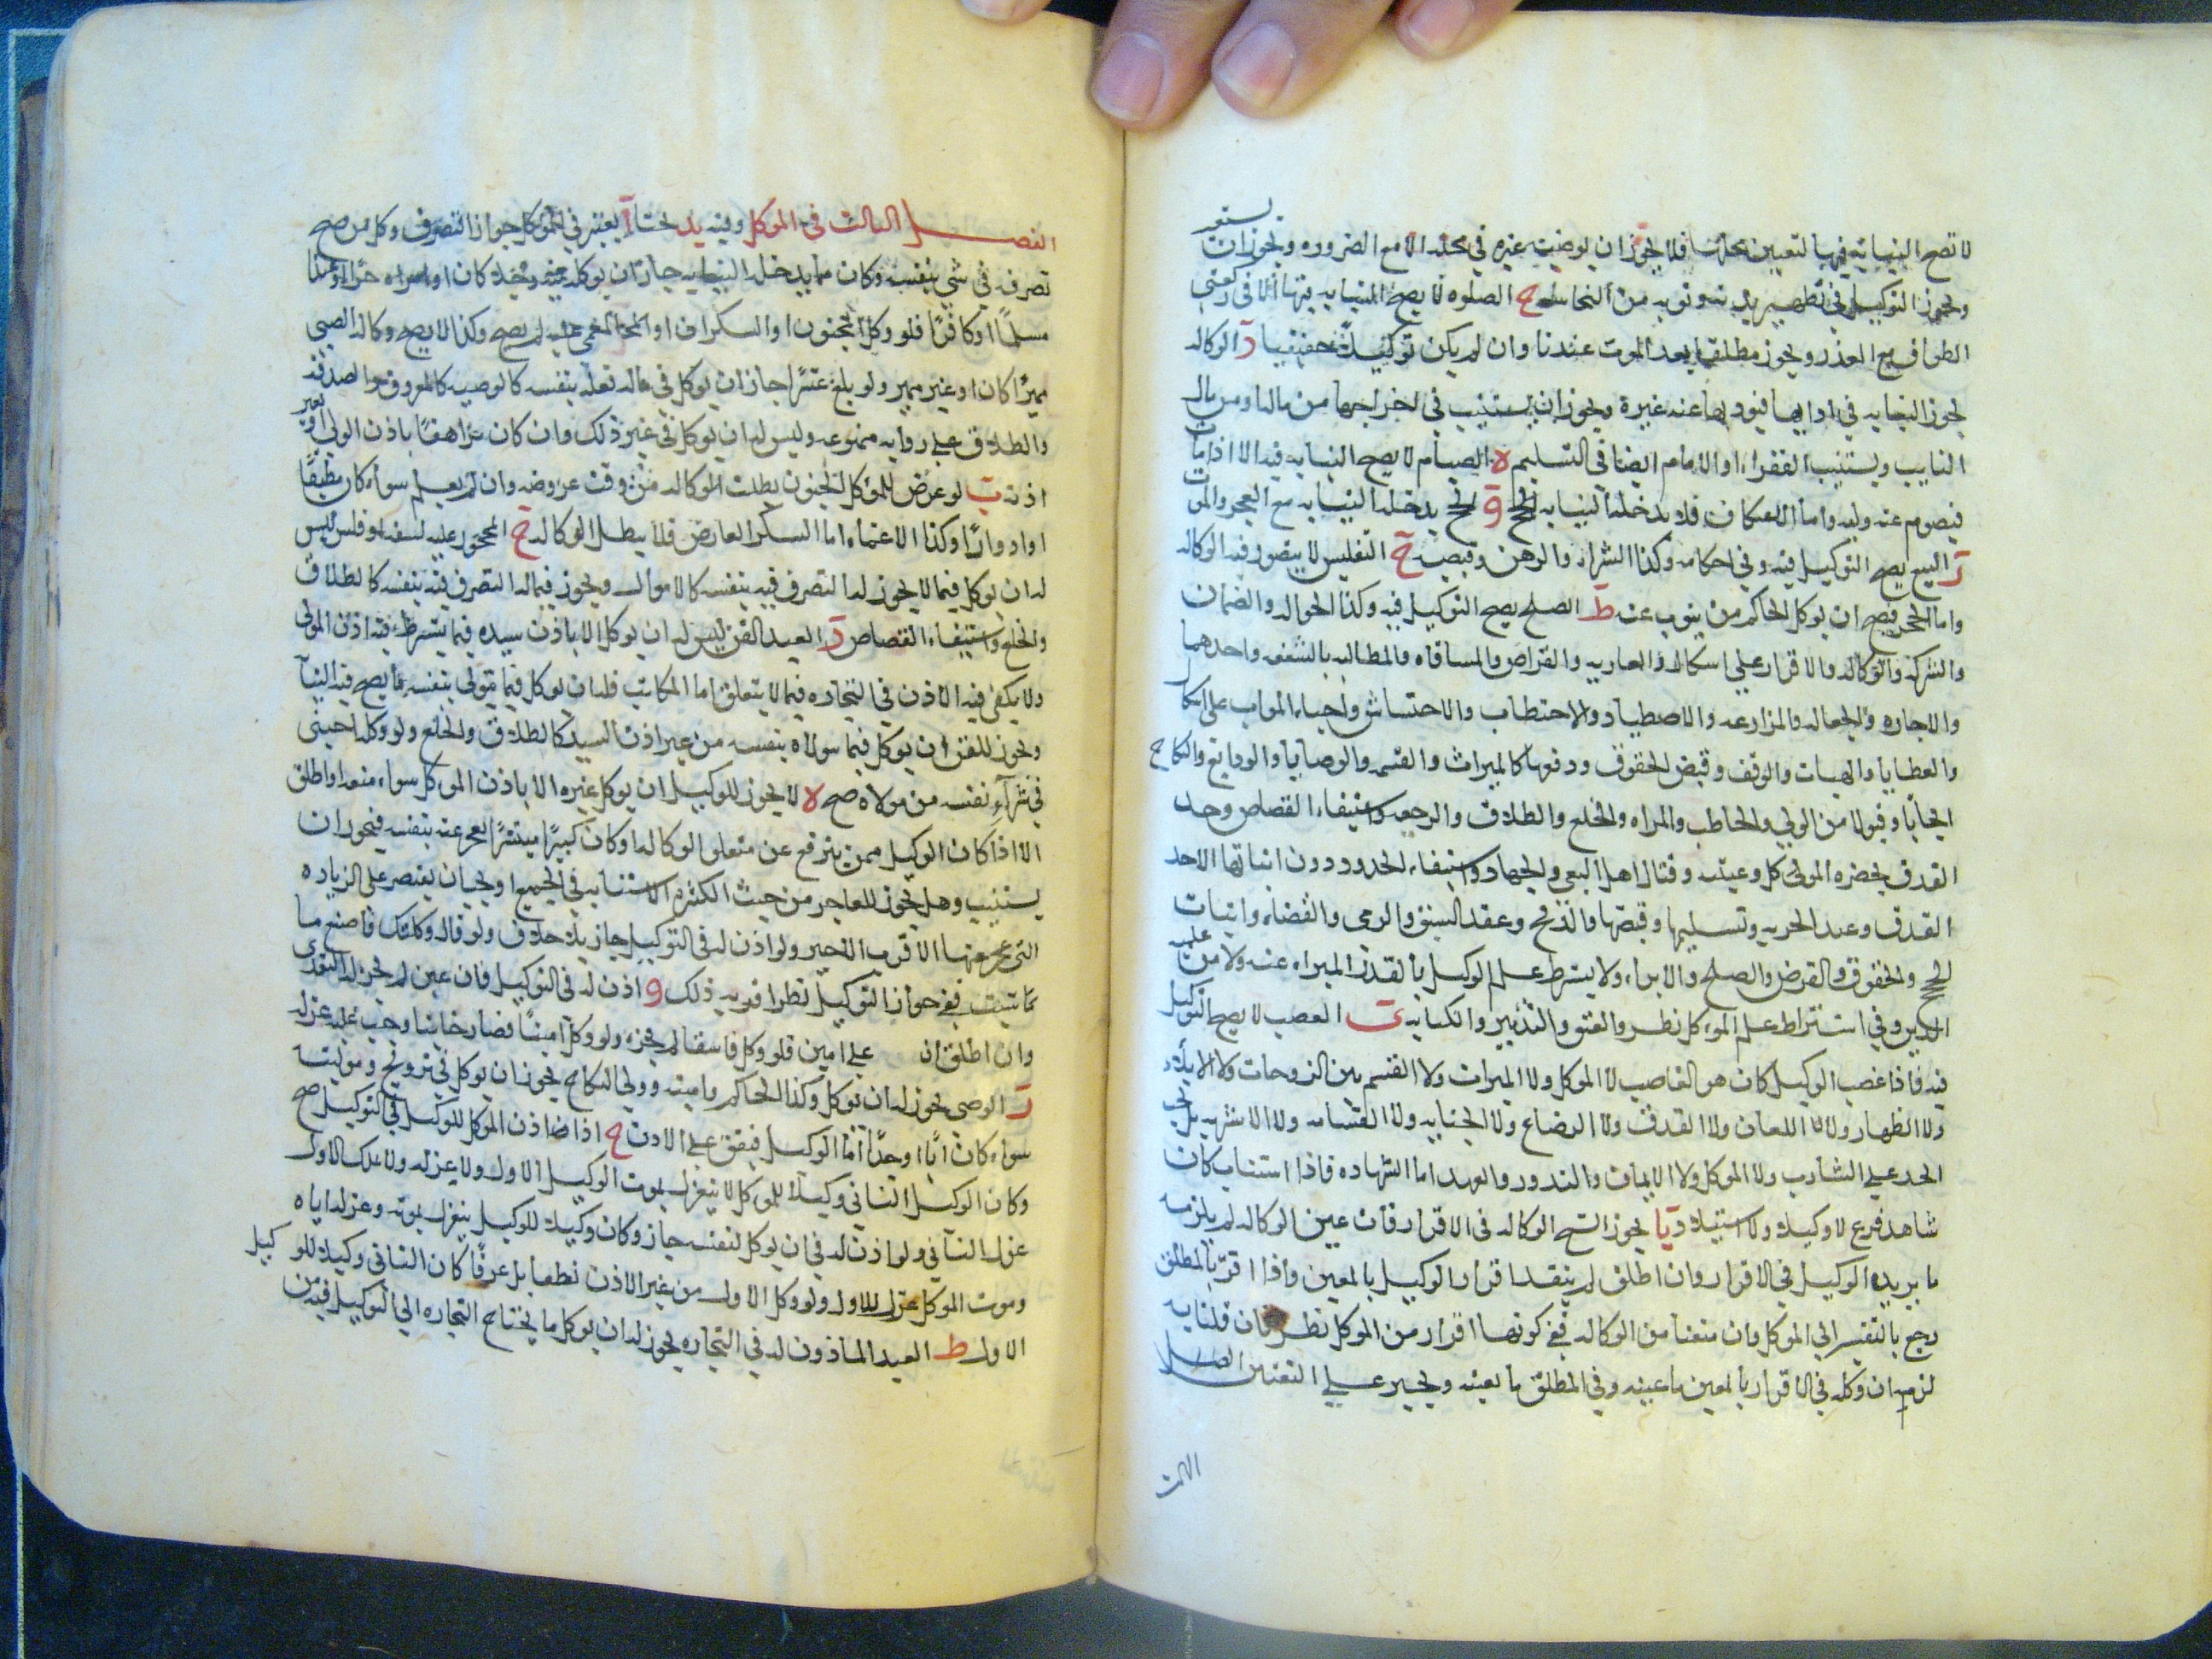 لا تصح النيابة فيها لتعيين محلها فلا يجوز ان يوضي غيره في محله الا مع الضروره ويجوز ان يستعين
ويجوز التوكيل في تطهير بدنه وثوبه من النجاسه ج الصلوه لا يصح النيابه فيها الا في ركعتي
الطواف مع العذر ويجوز مطلقا بعد الموت عندنا وان لم يكن توكيلا حقيقيا د الوكاله
يجوز النيابه في ادايها فيوديها عنه غيره ويجوز ان يستنيب في اخراجها من ماله ومن مال
النايب ويستنيب الفقراء او الامام ايضا في التسليم ه الصيام لا يصح النيابه فيه الا اذا مات
فيصوم عنه وليه واما الاعتكاف فلا يدخله النيابه و الحج يدخله النيابه مع العجز والموت
ز البيع يصح التوكيل فيه وفي احكامه وكذا الشراء والرهن وقبضه ح التفليس لا يتصور فيه الوكاله
واما الحجر فيصح ان يوكل الحاكم من ينوب عنه ط الصلح يصح التوكيل فيه وكذا الحواله والضمان
والشركه والوكاله والاقرار على اشكال والعاريه والقراض والمساقاه والمطالبه بالشفعه واخذها
والاجاره والجعاله والمزارعه والاصطياد والاحتطاب والاحتشاش واحياء الموات على اشكال
والعطايا والهبات والوقف وقبض الحقوق ودفعها كالميراث والقسمه والوصايا والودايع والنكاح
ايجابا وقبولا من الولي والخاطب والمراه والخلع والطلاق والرجعه واستيفاء القصاص وحد
القذف بحضره الموكل وغيبته وقتال اهل البغي والجهاد واستيفاء الحدود دون اثباتها الا حد
القذف وعقد الجزيه وتسليمها وقبضها والذبح وعقد السبق والرمي والقضاء واثبات
الحجج والحقوق والقرض والصلح والابراء ولا يشترط علم الوكيل بالقدر المبراء عنه ولا من عليه
الدين وفي اشتراط علم الموكل نظر والعتق والتدبير والكتابه ي الغصب لا يصح التوكيل
فيه فاذا غصب الوكيل كان هو الغاصب لا الموكل ولا الميراث ولا القسم بين الزوجات ولا الايلاء
ولا الظهار ولا اللعان ولا القذف ولا الرضاع ولا الجنايه ولا القسامه ولا الاشربه بل يجب
الحد على الشارب ولا الموكل ولا الايمان والنذور والعهد اما الشهاده فاذا استناب كان
شاهد فرع لا وكيلا ولا استنابة يا يجوز الوكاله في الاقرار فان عين الوكاله لم يلزمه
ما يريده الوكيل في الاقرار وان اطلق لم ينفذ اقرار الوكيل بالمعين واذا اقر بالمطلق
رجع بالتفسير الى الموكل وان منعنا من الوكاله ففي كونها اقرار من الموكل نظر فان قلنا به
لزم ان وكله في الاقرار بالمعين ما عينه وفي المطلق ما يعينه ويجبر على التعيين الفصل
الثالث
الفصل الثالث في الموكل وفيه يد بحثا ا يعتبر في الموكل جواز التصرف وكل من صح
تصرفه في شي بنفسه وكان مما يدخله النيابه جاز ان يوكل فيه رجلا كان او امراه حرا او عبدا
مسلما او كافرا فلو وكل المجنون او السكران او المغمى عليه لم يصح وكذا لا يصح وكاله الصبي
مميزا كان او غير مميز ولو بلغ عشرا جاز ان يوكل في ماله فعله بنفسه كالوصيه كالمعروف والصدقه
والطلاق على روايه ممنوعه وليس له ان يوكل في غير ذلك وان كان مراهقا باذن الولي او بغير
اذنه ب لو عرض للموكل الجنون بطلت الوكاله من وقت عروضه وان لم يعلم سواء كان مطبقا
او ادوارا وكذا الاغماء اما السكر العارض فلا يبطل الوكاله ج المحجور عليه لسفه او فلس ليس
له ان يوكل فيما لا يجوز له التصرف فيه بنفسه كالاموال ويجوز فيما له التصرف فيه بنفسه كالطلاق
والخلع واستيفاء القصاص د العبد القن ليس له ان يوكل الا باذن سيده فيما يشترط فيه اذن المولى
ولا يكفي فيه الاذن في التجاره فيما لا يتعلق اما المكاتب فله ان يوكل فيما يتولى بنفسه مما يصح فيه النيا
ويجوز للقن ان يوكل فيما يتولاه بنفسه من غير اذن السيد كالطلاق والخلع ولو وكله اجنبي
في شراء نفسه من مولاه صح ه لا يجوز للوكيل ان يوكل غيره الا باذن الموكل سواء منعه او اطلق
الا اذا كان الوكيل ممن يترفع عن متعلق الوكاله او كان كبيرا منتشرا يعجز عنه بنفسه فيجوز ان
يستنيب وهل يجوز للعاجز من حيث الكثره الاستنابه في الجميع او يجب ان يقتصر على الزياده
التي عجز عنها الاقرب الاخير ولو اذن له في التوكيل جاز بلا خلاف ولو قال وكلتك فاصنع ما
شئت ففي جواز التوكيل نظر اقربه ذلك و اذن له في التوكيل فان عين لم يجز له التعدي
وان اطلق ان على امين فلو وكل فاسقا لم يجزه ولو وكل امينا فصار خاينا وجب عليه عزله
ز الوصي يجوز له ان يوكل وكذا الحاكم وامينه وولي النكاح يجوز ان يوكل في تزويج موليته
سواء كان ابا او جدا اما الوكيل فيقف على الاذن ح اذا اذن الموكل للوكيل في التوكيل صح
وكان الوكيل الثاني وكيلا للموكل لا ينعزل بموت الوكيل الاول ولا يعزله ولا يملك الاول
عزل الثاني ولو اذن له في ان يوكل لنفسه جاز وكان وكيلا للوكيل ينعزل بموته وعزله اياه
وموت الموكل وعزل للاول ولو وكل الاول من غير الاذن نطقا بل عرفا كان الثاني وكيلا للوكيل
الاول ط العبد الماذون له في التجاره يجوز له ان يوكل ما يحتاج التجاره الى التوكيل فيه من